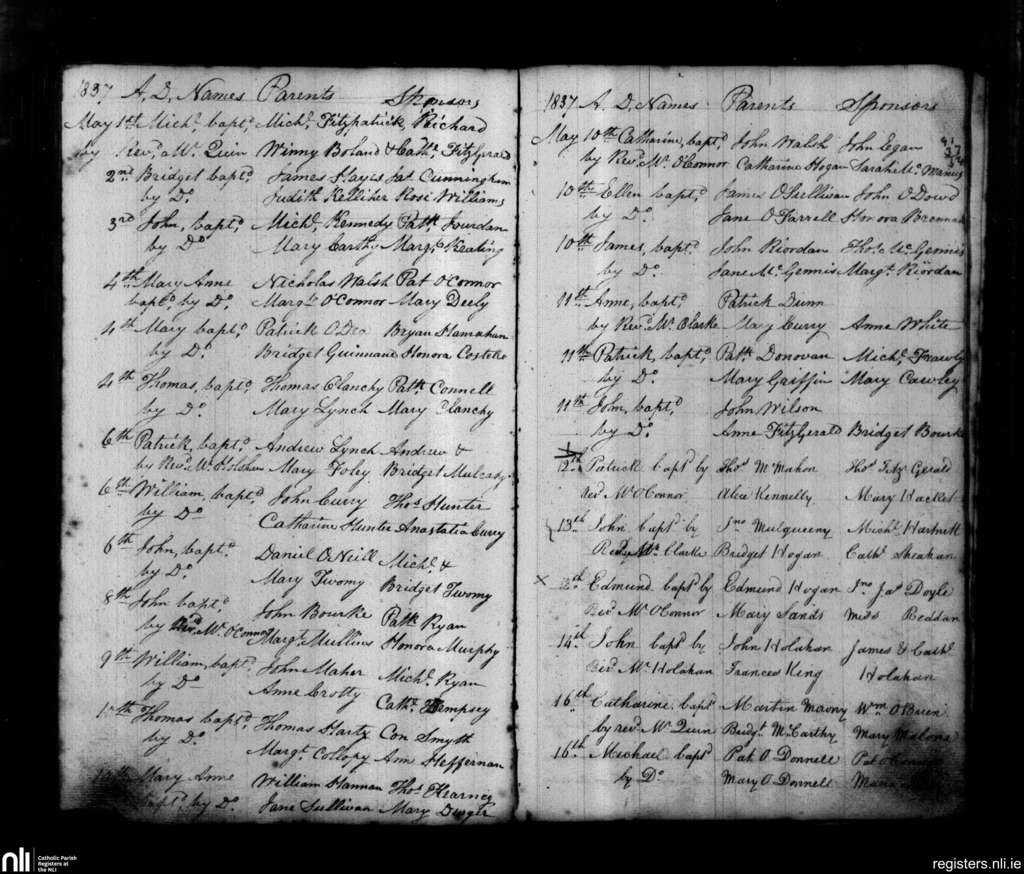 1837 A.D. Names Parents Sponsors
May 1st Mich.l bapt.d Mich.l Fitzpatrick, Richard
by Rev.d Mr. Quin Winny Boland & Cath.e Fitzgerald
2nd Bridget bapt.d James Hayes Jas. Cunningham
by Do. Judith Kelliher Rose Williams
3rd John, bapt.d Mich.l Kennedy Patk. Jourdan
by Do. Mary Carthy Marg.t Keating
4th Mary Anne Nicholas Walsh Pat O'Connor
bapt.d by Do. Marg.t O'Connor Mary Deely
4th Mary bapt.d Patrick O'Dea Bryan Hanrahan
by Do. Bridget Guinnane Honora Costello
4th Thomas, bapt.d Thomas Clanchy Patk. Connell
by Do. Mary Lynch Mary Clanchy
6th Patrick, bapt.d Andrew Lynch Andrew &
by Rev.d Mr. Holahan Mary Foley Bridget Mulcahy
6th William, bapt.d John Curry Thos. Hunter
by Do Catharine Hunter Anastatia Curry
6th John, bapt.d Daniel O'Neill Mich.l &
by Do. Mary Twomy Bridget Twomy
8th John bapt.d John Bourke Patk Ryan
by Rev.d Mr. O'Connor Marg.t Mullins Honora Murphy
9th William, bapt.d John Maher Mich.l Ryan
by Do Anne Crotty Cath.e Dempsey
10th Thomas bapt.d Thomas Hartz Con Smyth
by Do. Marg.t Collopy Ann Heffernan
Mary Anne William Hannan Thos. Kearney
bapt.d by Do. Jane Sullivan Mary Dwyer
1837 A.D. Names Parents Sponsors
May 10th Catharine, bapt.d John Walsh John Egan
by Rev.d Mr. O'Connor Catharine Hogan Sarah Mc. Manus
10th Ellen, bapt.d James O'Sullivan John O'Dowd
by Do. Jane O'Farrell Honora Brennan
10th James, bapt.d John Riordan Thos. Mc. Gennis
by Do. Jane Mc. Gennis Marg.t Riordan
11th Anne, bapt.d Patrick Dunn
by Rev.d Mr. Clarke Mary Curry Anne White
11th Patrick, bapt.d Patk. Donovan Mich.l Frawly
by Do. Mary Griffin Mary Cawley
11th John, bapt.d John Wilson
by Do. Anne Fitzgerald Bridget Bourke
12th Patrick bapt.d by Thos. McMahon Thos. Fitz Gerald
Rev.d Mr. O'Connor Alice Kennelly Mary Hacket
13th John bapt.d by Jno Mulqueeny Mich.l Hartnett
Rev.d Mr. Clarke Bridget Hogan Cath.e Sheahan
x 12th Edmund bapt.d by Edmund Hogan Jno. Jas Doyle
Rev.d Mr. O'Connor Mary Sands Miss Reddan
14th John bapt.d by John Holahan James & Cath.e
Rev.d Mr Holahan Frances King Holahan
16th Catharine bapt.d Martin Meany Wm O'Brien
by rev.d Mr. Quin Bridg.t McCarthy Mary Malone
16th Michael bapt.d Pat O Donnell Pat
by Do. Mary O Donnell
nli Catholic Parish
Registers at
the NLI
registers.nli.ie